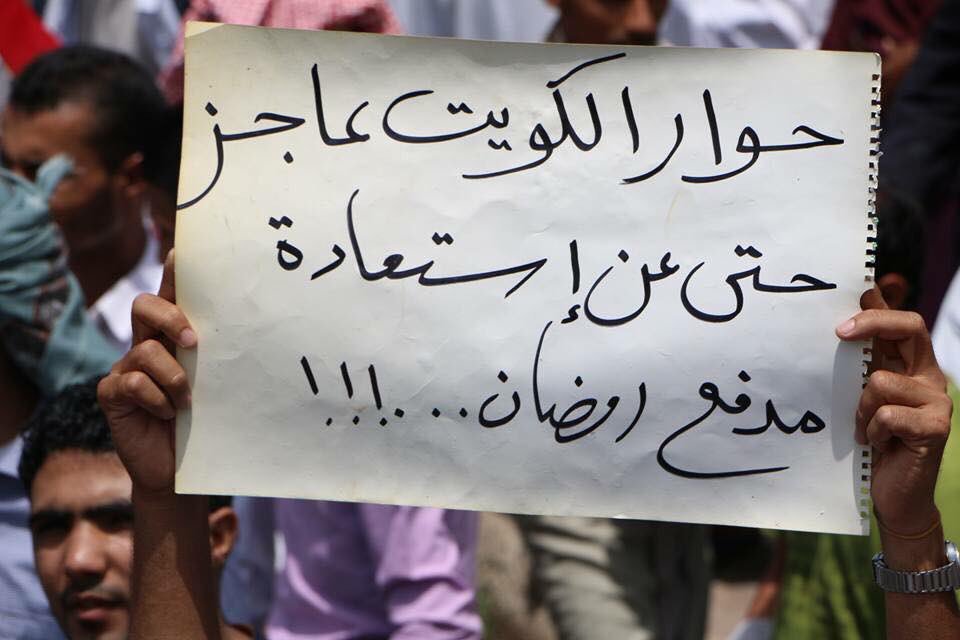 حوار الكويت عاجز
حتى عن إستعادة
مدفع رمضان...!!!